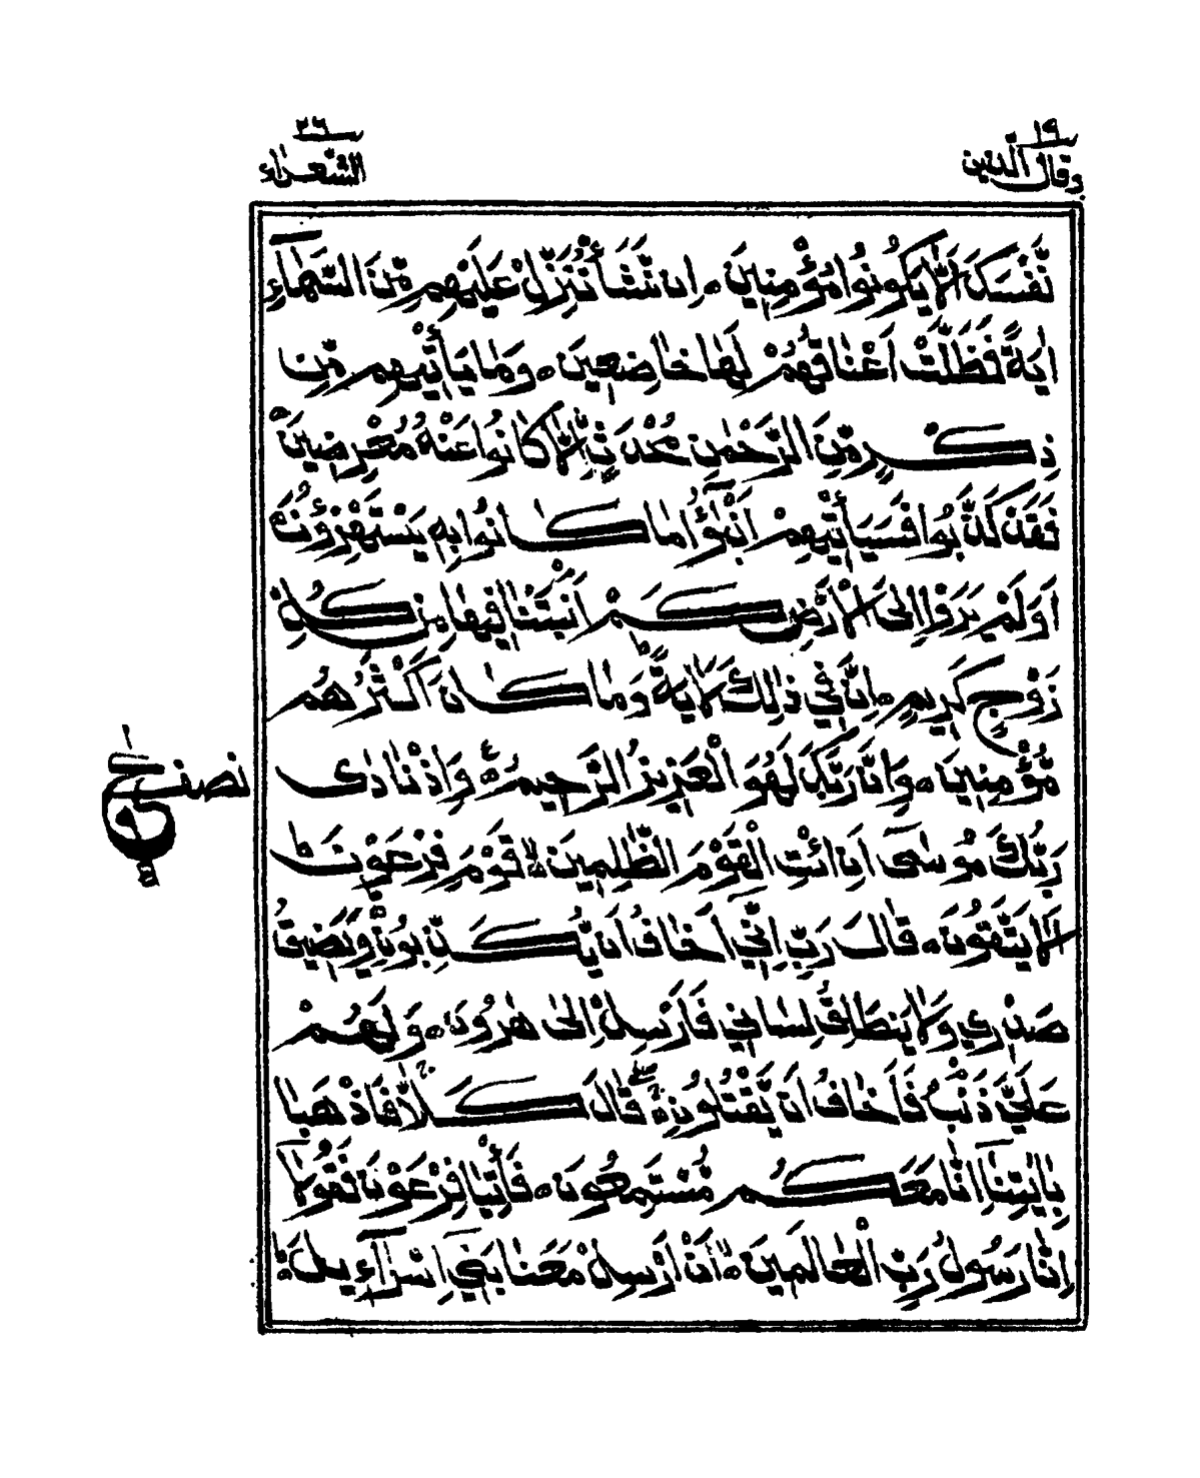 وقال الذين ١٩
الشعراء ٢٦
نَّفْسَكَ اَلَّا يَكُونُوا مُؤْمِنِينَ ۝ اِن نَّشَأْ نُنَزِّلْ عَلَيْهِم مِّنَ السَّمَآءِ
اٰيَةً فَظَلَّتْ اَعْنَاقُهُمْ لَهَا خَاضِعِينَ ۝ وَمَا يَأْتِيهِم مِّن
ذِكْرٍ مِّنَ الرَّحْمٰنِ مُحْدَثٍ اِلَّا كَانُوا عَنْهُ مُعْرِضِينَ ۝
فَقَدْ كَذَّبُوا فَسَيَأْتِيهِمْ اَنْبٰٓؤُا مَا كَانُوا بِهٖ يَسْتَهْزِءُونَ ۝
اَوَلَمْ يَرَوْا اِلَى الْاَرْضِ كَمْ اَنْبَتْنَا فِيهَا مِن كُلِّ
زَوْجٍ كَرِيمٍ ۝ اِنَّ فِي ذٰلِكَ لَاٰيَةً وَمَا كَانَ اَكْثَرُهُم
مُّؤْمِنِينَ ۝ وَاِنَّ رَبَّكَ لَهُوَ الْعَزِيزُ الرَّحِيمُ ۝ وَاِذْ نَادٰى
رَبُّكَ مُوسٰٓى اَنِ ائْتِ الْقَوْمَ الظّٰلِمِينَ ۝ قَوْمَ فِرْعَوْنَ
اَلَا يَتَّقُونَ ۝ قَالَ رَبِّ اِنِّيٓ اَخَافُ اَن يُّكَذِّبُونِ ۝ وَيَضِيقُ
صَدْرِي وَلَا يَنطَلِقُ لِسَانِي فَاَرْسِلْ اِلٰى هٰرُونَ ۝ وَلَهُمْ
عَلَيَّ ذَنْبٌ فَاَخَافُ اَن يَّقْتُلُونِ ۝ قَالَ كَلَّا فَاذْهَبَا
بِاٰيٰتِنَآ اِنَّا مَعَكُم مُّسْتَمِعُونَ ۝ فَأْتِيَا فِرْعَوْنَ فَقُولَآ
اِنَّا رَسُولُ رَبِّ الْعَالَمِينَ ۝ اَنْ اَرْسِلْ مَعَنَا بَنِيٓ اِسْرَآءِيلَ ۝
نصف